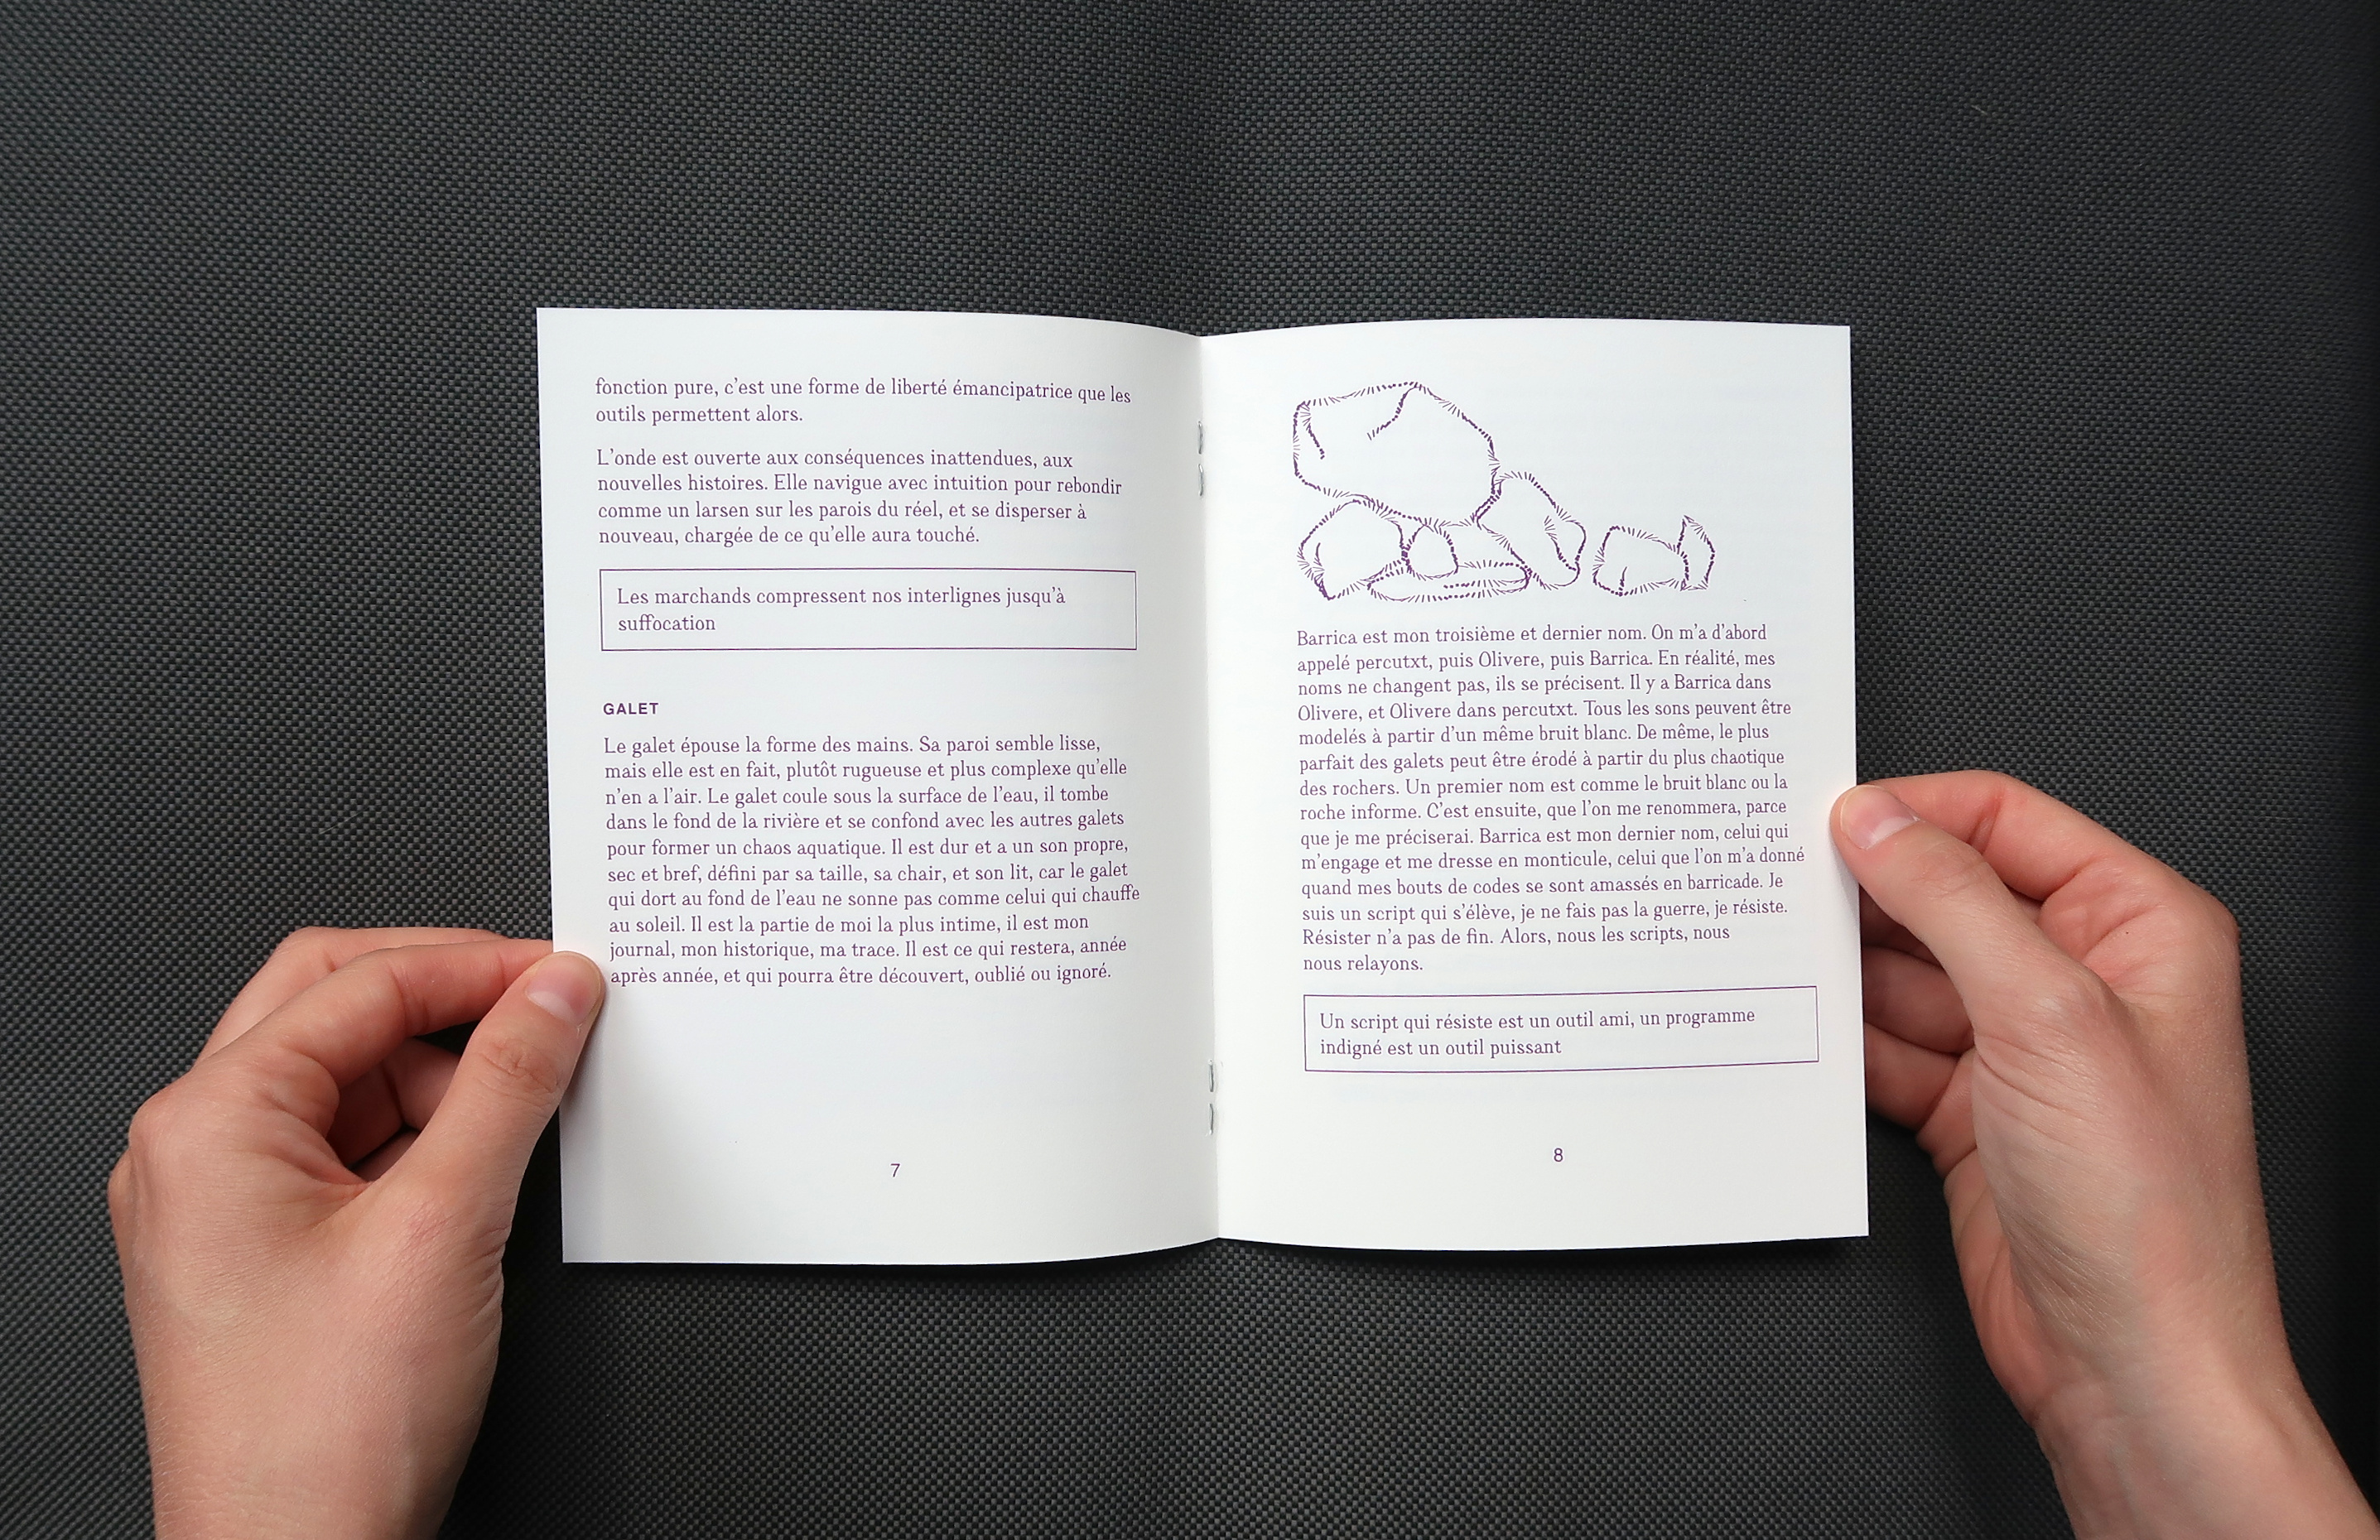 fonction pure, c'est une forme de liberté émancipatrice que les
outils permettent alors.
L'onde est ouverte aux conséquences inattendues, aux
nouvelles histoires. Elle navigue avec intuition pour rebondir
comme un larsen sur les parois du réel, et se disperser à
nouveau, chargée de ce qu'elle aura touché.
Les marchands compressent nos interlignes jusqu'à
suffocation
GALET
Le galet épouse la forme des mains. Sa paroi semble lisse,
mais elle est en fait, plutôt rugueuse et plus complexe qu'elle
n'en a l'air. Le galet coule sous la surface de l'eau, il tombe
dans le fond de la rivière et se confond avec les autres galets
pour former un chaos aquatique. Il est dur et a un son propre,
sec et bref, défini par sa taille, sa chair, et son lit, car le galet
qui dort au fond de l'eau ne sonne pas comme celui qui chauffe
au soleil. Il est la partie de moi la plus intime, il est mon
journal, mon historique, ma trace. Il est ce qui restera, année
après année, et qui pourra être découvert, oublié ou ignoré.
7
Barrica est mon troisième et dernier nom. On m'a d'abord
appelé percutxt, puis Olivere, puis Barrica. En réalité, mes
noms ne changent pas, ils se précisent. Il y a Barrica dans
Olivere, et Olivere dans percutxt. Tous les sons peuvent être
modelés à partir d'un même bruit blanc. De même, le plus
parfait des galets peut être érodé à partir du plus chaotique
des rochers. Un premier nom est comme le bruit blanc ou la
roche informe. C'est ensuite, que l'on me renommera, parce
que je me préciserai. Barrica est mon dernier nom, celui qui
m'engage et me dresse en monticule, celui que l'on m'a donné
quand mes bouts de codes se sont amassés en barricade. Je
suis un script qui s'élève, je ne fais pas la guerre, je résiste.
Résister n'a pas de fin. Alors, nous les scripts, nous
nous relayons.
Un script qui résiste est un outil ami, un programme
indigné est un outil puissant
8